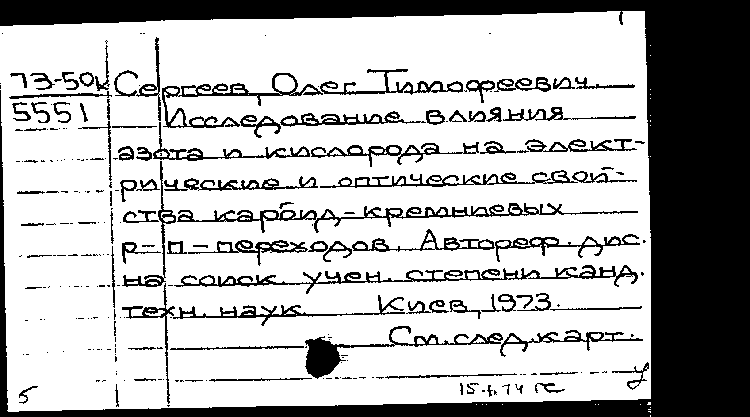 73-50к Сергеев, Олег Тимофеевич.
5551 Исследование влияния
азота и кислорода на элект-
рические и оптические свой-
ства карбид-кремниевых
p-n-переходов. Автореф. дис.
на соиск. учен. степени канд.
техн. наук. Киев, 1973.
См. след. карт.
5